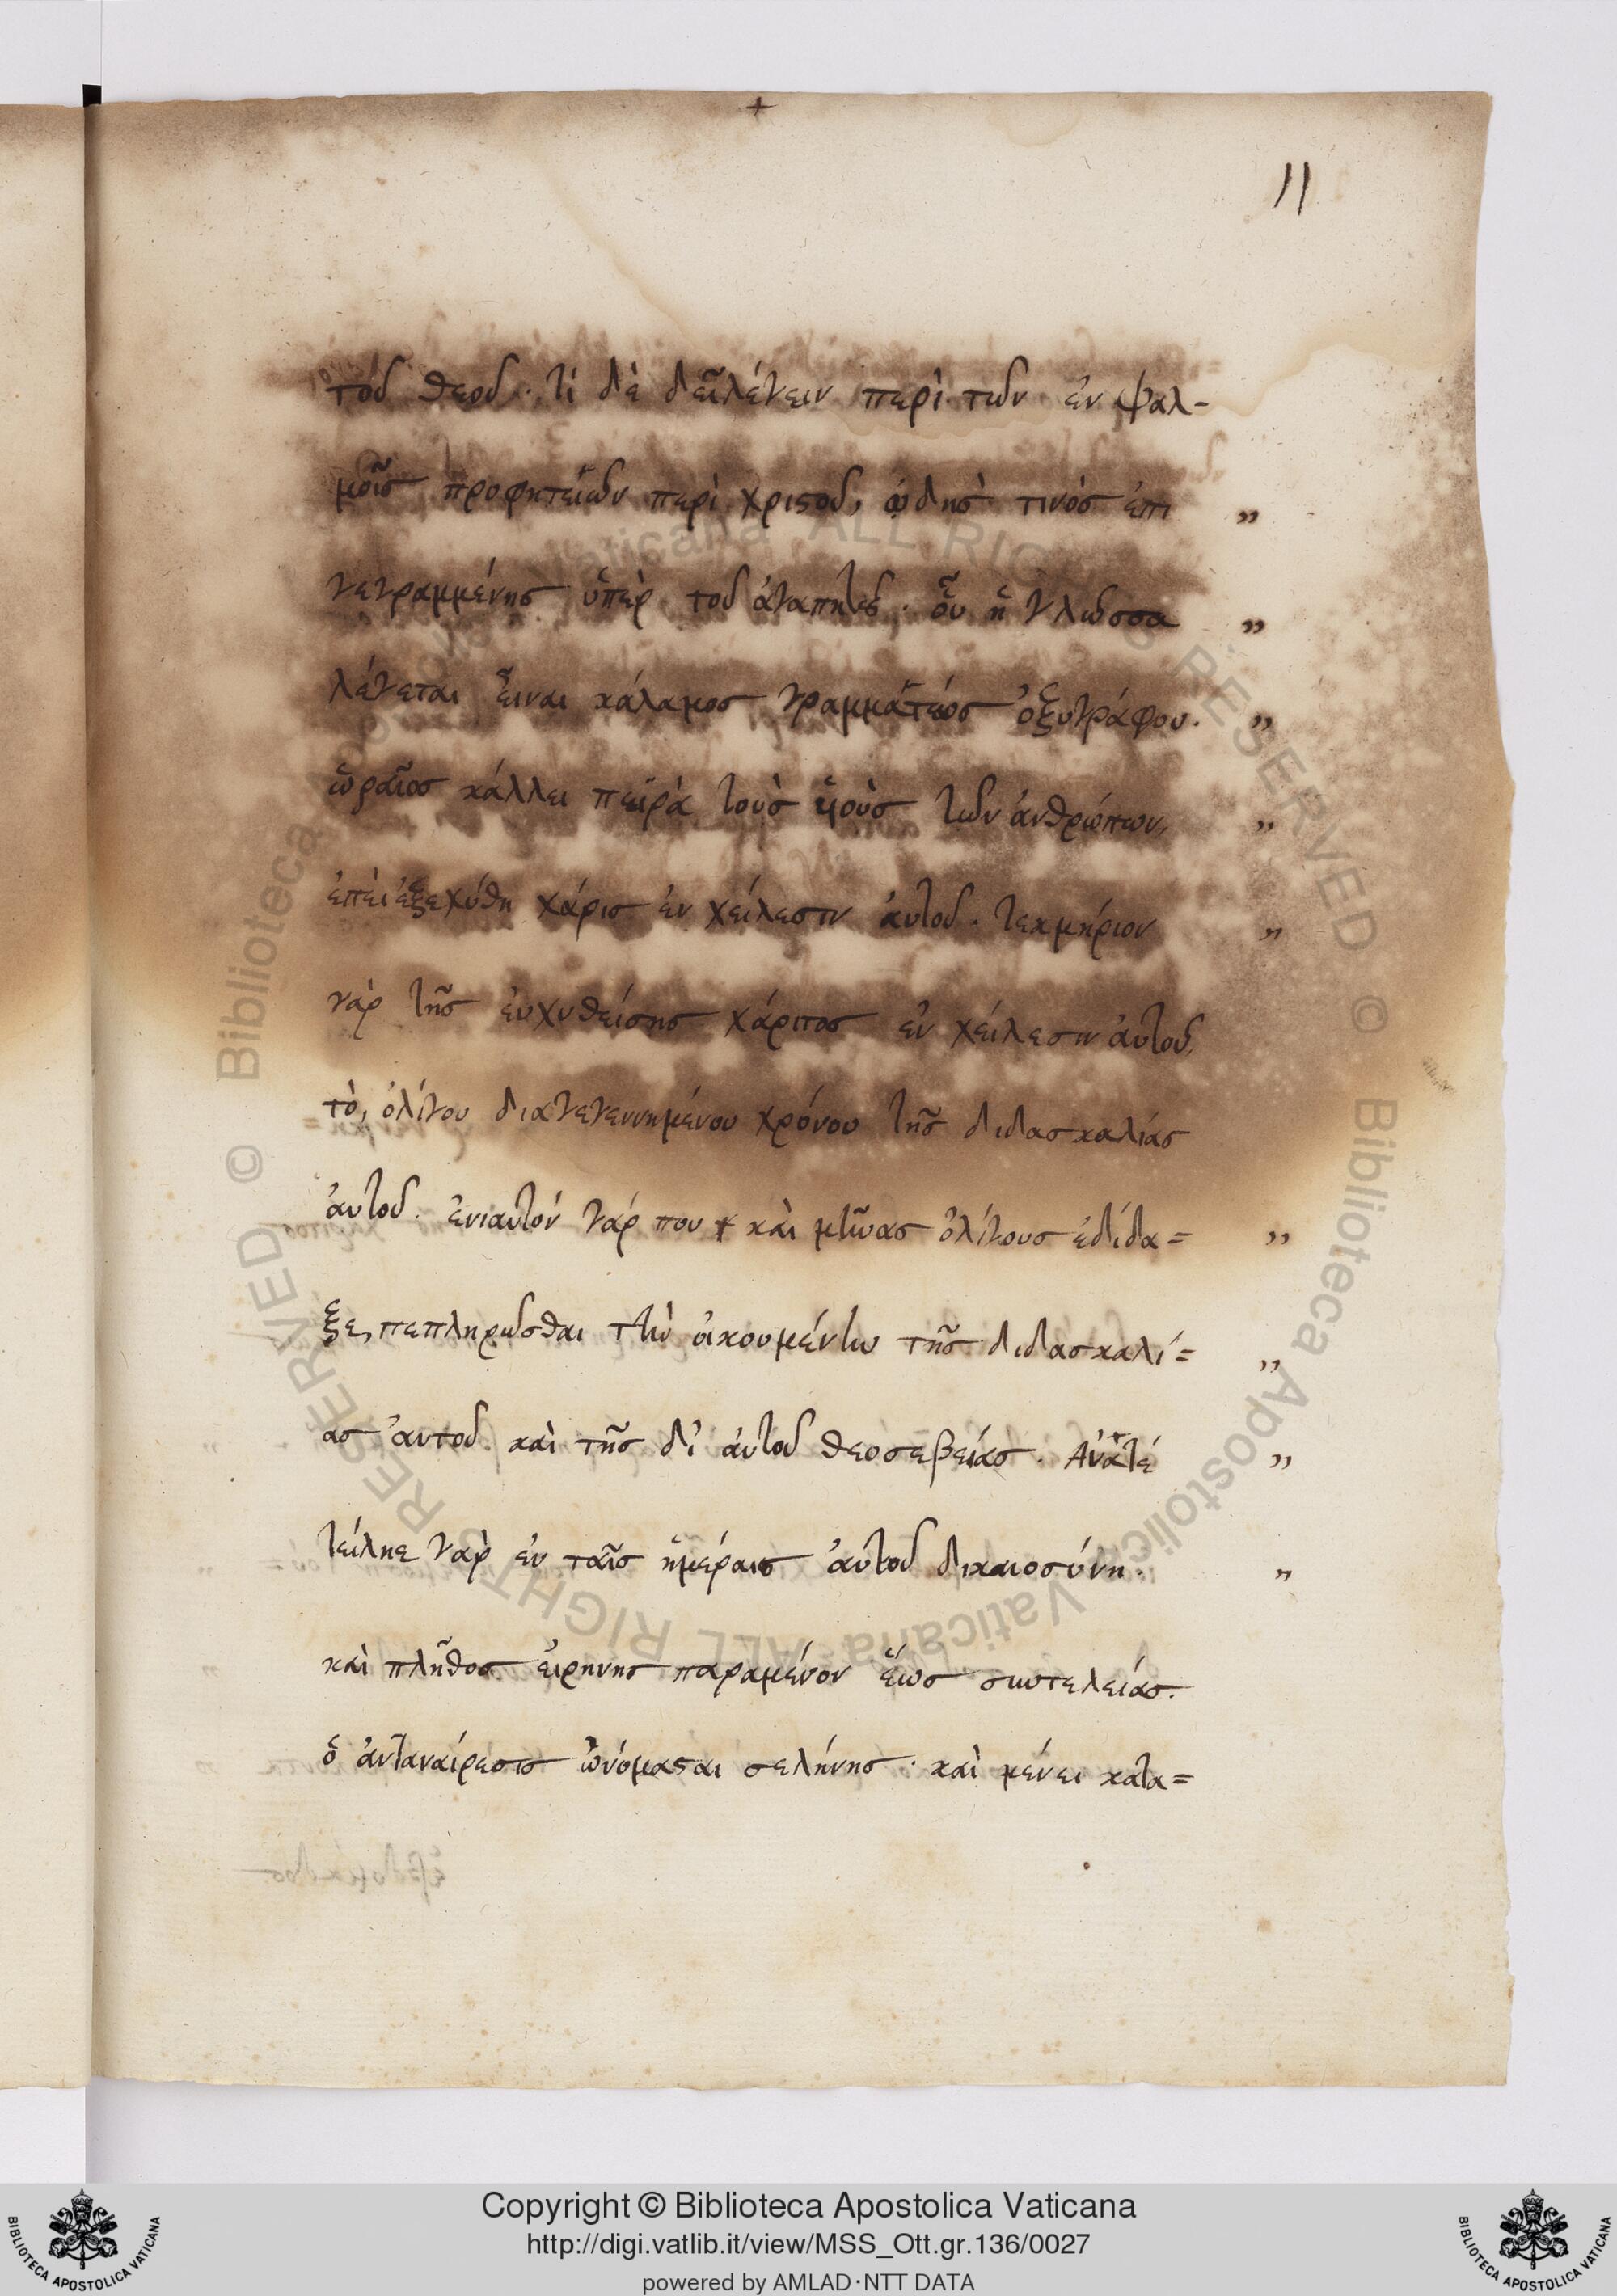 +
11
τοῦ θεοῦ. τί δὲ δεῖ λέγειν περὶ τῶν ἐν ψαλ-
μοῖς προφητειῶν περὶ χριστοῦ, ᾠδῆς τινὸς ἐπι „
γεγραμμένης ὑπὲρ τοῦ ἀγαπητοῦ. οὗ ἡ γλῶσσα „
λέγεται εἶναι κάλαμος γραμματέως ὀξυγράφου. „
ὡραῖος κάλλει παρὰ τοὺς υἱοὺς τῶν ἀνθρώπων, „
ἐπεὶ ἐξεχύθη χάρις ἐν χείλεσιν αὐτοῦ. τεκμήριον „
γὰρ τῆς ἐκχυθείσης χάριτος ἐν χείλεσιν αὐτοῦ,
τὸ, ὀλίγου διαγεγεννημένου χρόνου τῆς διδασκαλίας
αὐτοῦ. ἐνιαυτὸν γάρ που καὶ μῆνας ὀλίγους ἐδίδα= „
ξε, πεπληρῶσθαι τὴν οἰκουμένην τῆς διδασκαλί= „
ας αὐτοῦ. καὶ τῆς δι' αὐτοῦ θεοσεβείας. Ἀνατέ „
τείληε γὰρ ἐν ταῖς ἡμέραις αὐτοῦ δικαιοσύνη. „
καὶ πλῆθος εἰρήνης παραμένον ἕως συντελείας.
ὃ ἀνταναίρεσις ὠνόμασται σελήνης. καὶ μένει κατα=
Copyright © Biblioteca Apostolica Vaticana
http://digi.vatlib.it/view/MSS_Ott.gr.136/0027
powered by AMLAD·NTT DATA
BIBLIOTECA APOSTOLICA VATICANA
BIBLIOTECA APOSTOLICA VATICANA
© Biblioteca Apostolica Vaticana ALL RIGHTS RESERVED
© Biblioteca Apostolica Vaticana ALL RIGHTS RESERVED